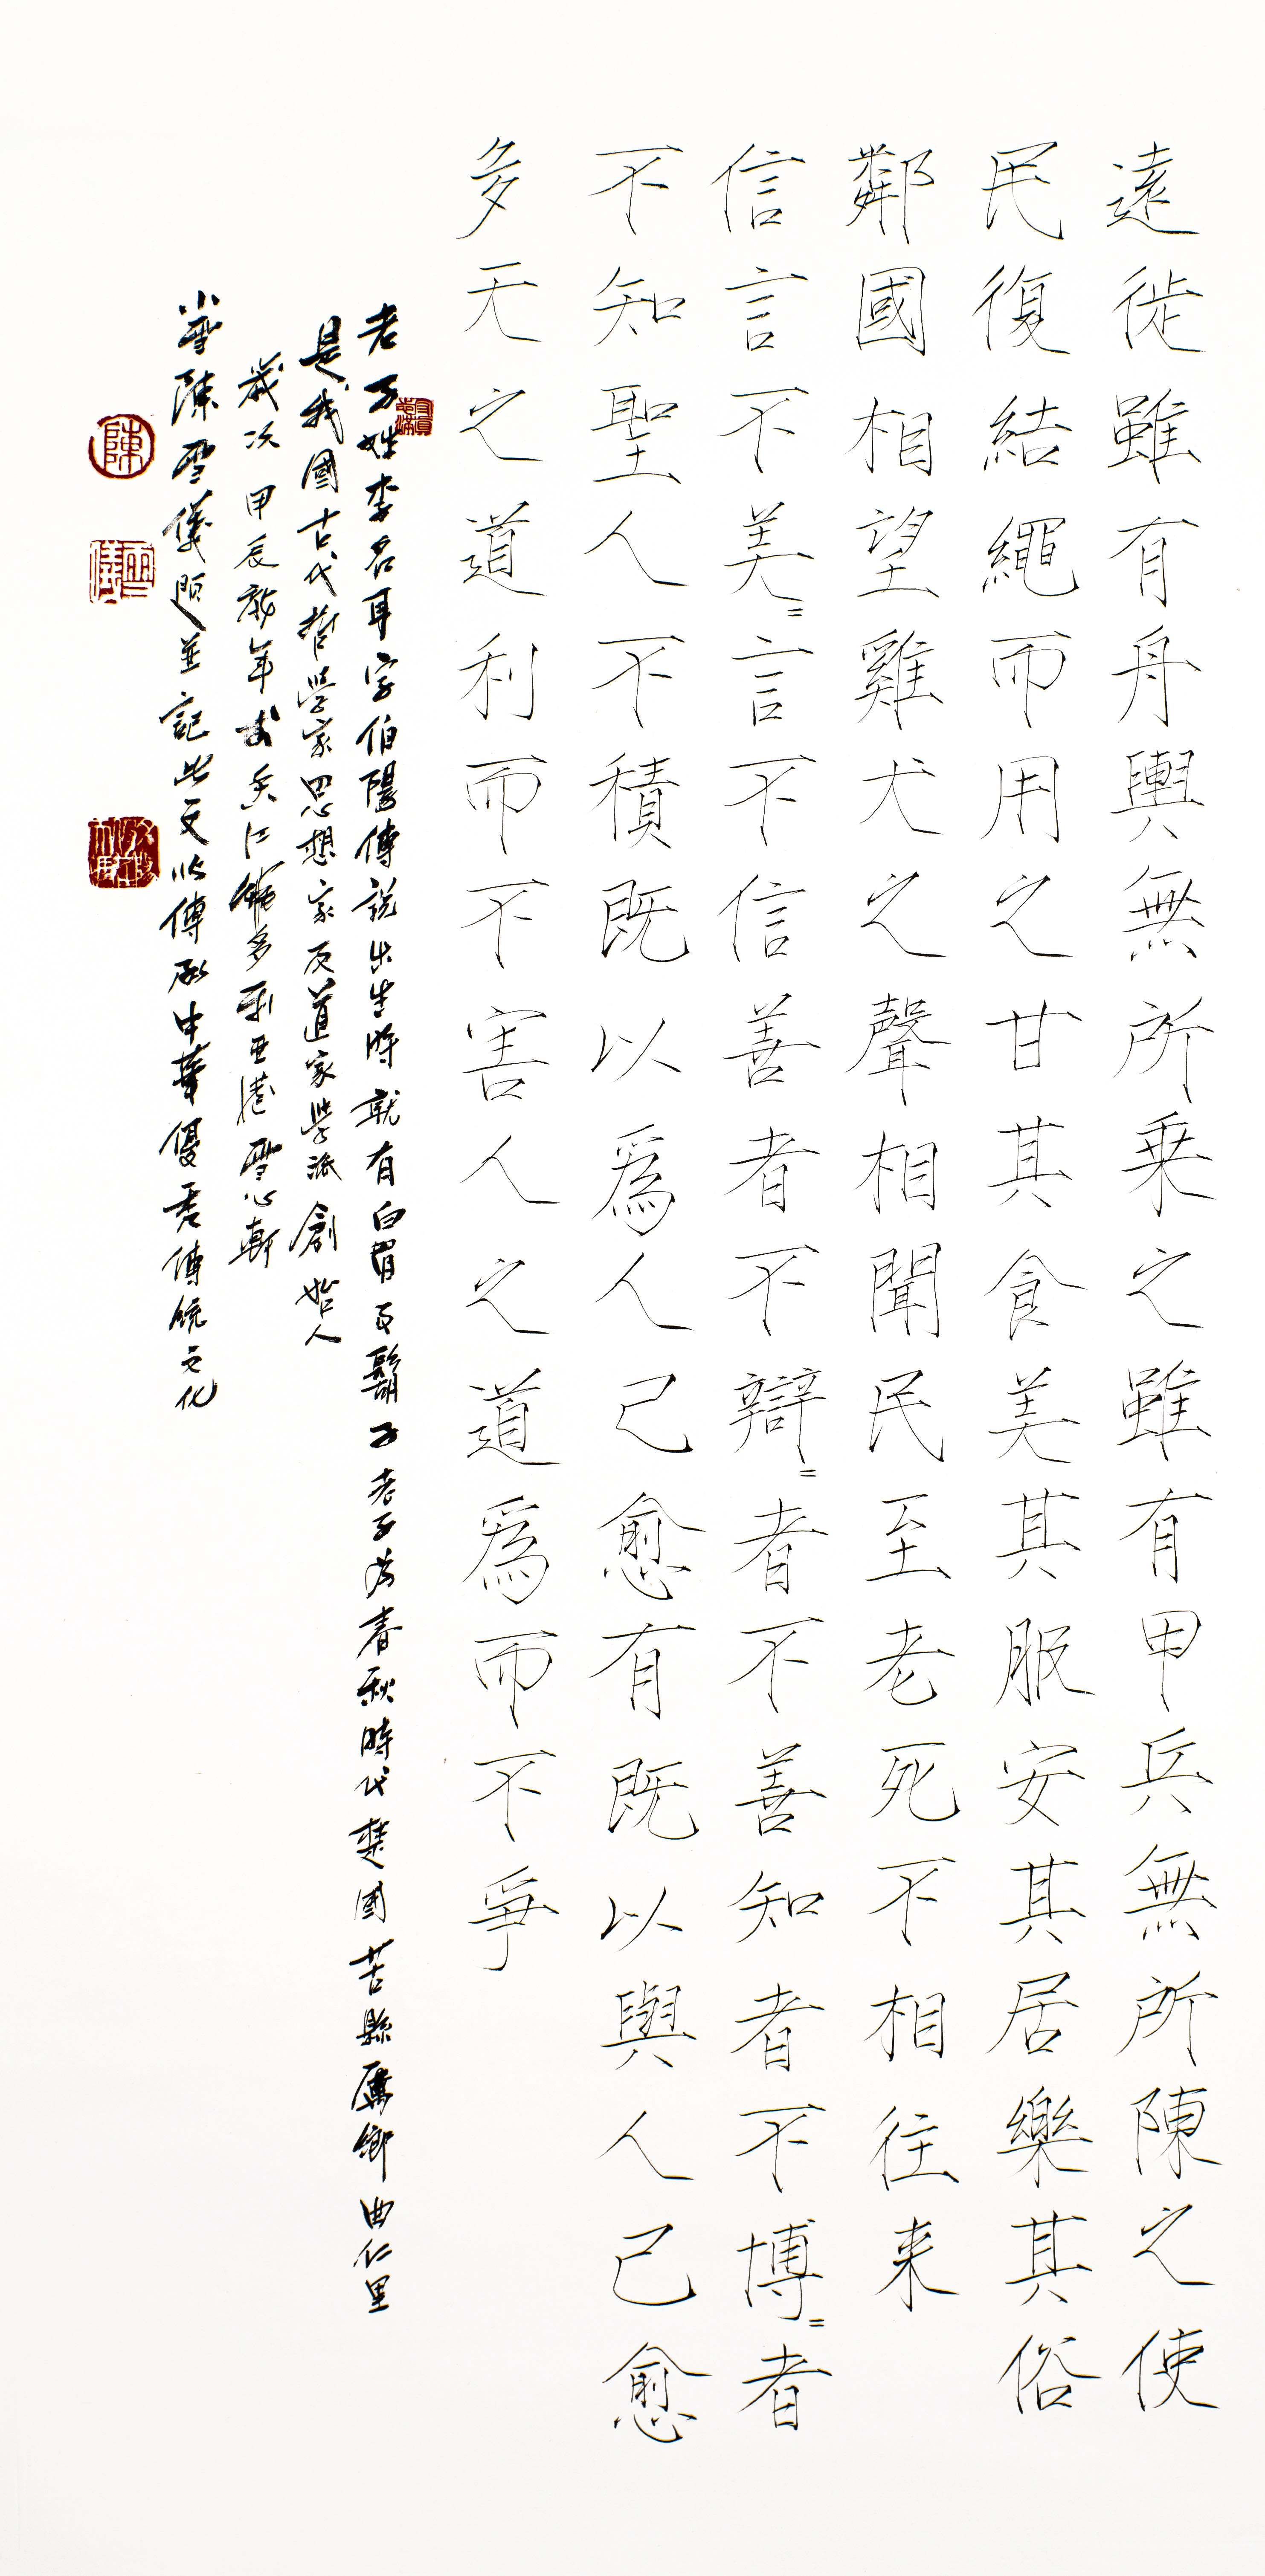 遠徙雖有舟輿無所乘之雖有甲兵無所陳之使
民復結繩而用之甘其食美其服安其居樂其俗
鄰國相望雞犬之聲相聞民至老死不相往来
信言不美=言不信善者不辯=者不善知者不博=者
不知聖人不積既以爲人己愈有既以與人己愈
多天之道利而不害人之道爲而不爭
老子姓李名耳字伯陽傳說出生時就有白眉及鬍子老子為春秋時代楚國苦縣厲鄉曲仁里
是我國古代哲學家思想家及道家學派創始人
歲次甲辰龍年書於江維多利亞港雪心軒
小雪陳雪儀題並記此文以傳承中華優秀傳統文化
陳
雪儀